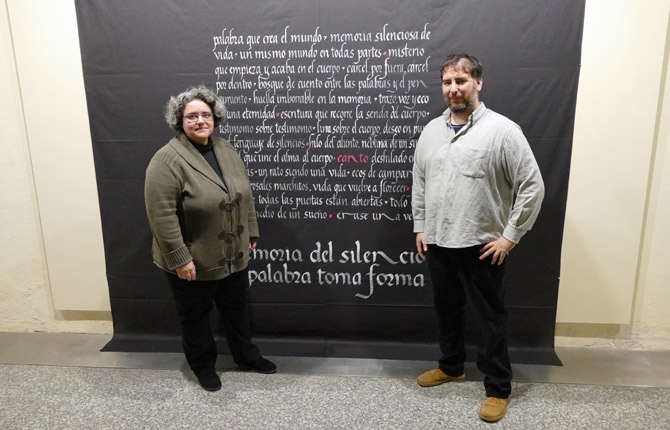 palabra que crea el mundo · memoria silenciosa de
vida · un mismo mundo en todas partes · misterio
que empieza y acaba en el cuerpo · cárcel por fuera, cárcel
por dentro · bosque de cuento entre las palabras y el pen
samiento · huella imborrable en la memoria · trazo, voz y eco
una eternidad · escritura que recorre la senda del cuerpo
testimonio sobre testimonio · sobre el cuerpo, deseo en pu
lenguaje de silencios · filo del aliento, neblina de un su
que une el alma al cuerpo · canto deshilado e
as · un rato siendo una vida · ecos de campa
rosales marchitos, vida que vuelve a florecer
todas las puertas están abiertas · todo
medio de un sueño · érase una ve
moria del silencio
palabra toma forma